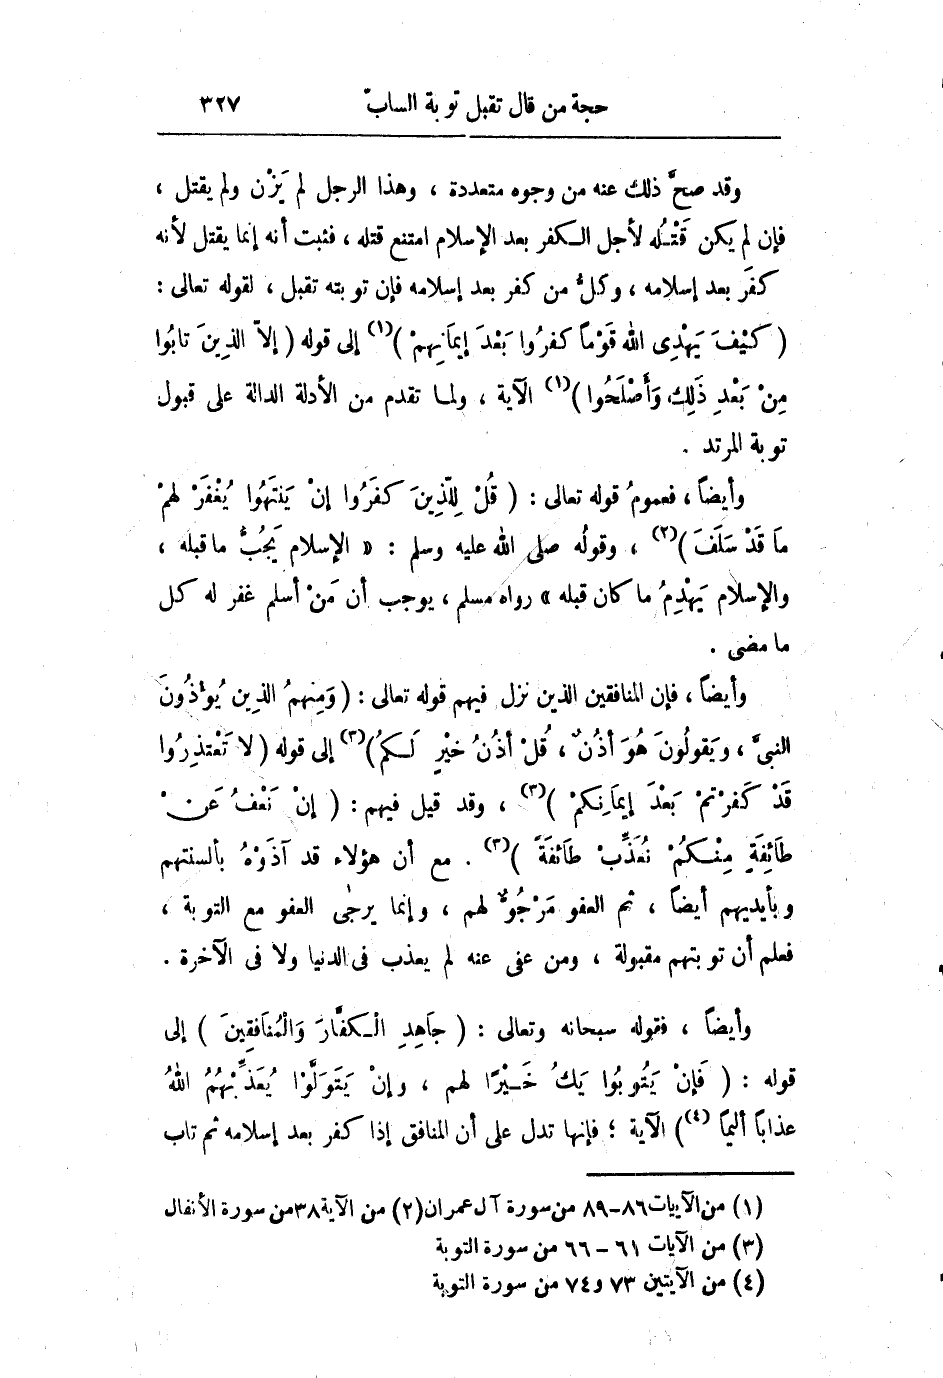 حجة من قال تقبل توبة السابّ ٣٢٧
وقد صحَّ ذلك عنه من وجوه متعددة ، وهذا الرجل لم يَزْن ولم يقتل ،
فإن لم يكن قَتْلُه لأجل الكفر بعد الإسلام امتنع قتله ، فثبت أنه إنما يقتل لأنه
كفَر بعد إسلامه ، وكلُّ من كفر بعد إسلامه فإن توبته تقبل ، لقوله تعالى :
( كيْفَ يَهْدِى الله قَوْماً كفرُوا بَعْدَ إيمَانِهِمْ )(١) إلى قوله ( إلاّ الذِينَ تابُوا
مِنْ بَعْدِ ذَلِكَ وَأَصْلَحُوا )(١) الآية ، ولما تقدم من الأدلة الدالة على قبول
توبة المرتد .
وأيضاً ، فعمومُ قوله تعالى : ( قُلْ لِلَّذِينَ كفَرُوا إنْ يَنتَهُوا يُغْفَرْ لهمْ
مَا قَدْ سَلَفَ )(٢) ، وقولُه صلى الله عليه وسلم : « الإسلام يَجُبُّ ما قبله ،
والإسلام يَهْدِمُ ما كان قبله » رواه مسلم ، يوجب أن مَنْ أسلم غفر له كل
ما مضى .
وأيضاً ، فإن المنافقين الذين نزل فيهم قوله تعالى : ( وَمِنهمُ الذِين يُؤذُونَ
النبىَّ ، ويَقولُونَ هُوَ أذُنٌ ، قُلْ أذُنُ خيْرٍ لَكمُ )(٣) إلى قوله ( لا تَعْتذِرُوا
قَدْ كَفرْتمْ بَعْدَ إيمَانِكمْ )(٣) ، وقد قيل فيهم : ( إنْ نَعْفُ عَنْ
طَائِفَةٍ مِنْكمُ نُعَذِّبْ طَائفَةً )(٣) . مع أن هؤلاء قد آذَوْهُ بألسنتهم
وبأيديهم أيضاً ، ثم العفو مَرْجُوٌّ لهم ، وإنما يرجٰى العفو مع التوبة ،
فعلم أن توبتهم مقبولة ، ومن عفى عنه لم يعذب فى الدنيا ولا فى الآخرة .
وأيضاً ، فقوله سبحانه وتعالى : ( جاَهِدِ الْكفَّارَ وَالْمُنَافقِينَ ) إلى
قوله : ( فَإنْ يَتُوبُوا يَكُ خَيْرًا لهم ، وإنْ يَتَوَلَّوْا يُعَذِّبْهُمُ اللهُ
عذاباً أليمًا (٤)) الآية ؛ فإنها تدل على أن المنافق إذا كفر بعد إسلامه ثم تاب
(١) من الآيات ٨٦–٨٩ من سورة آل عمران (٢) من الآية ٣٨ من سورة الأنفال
(٣) من الآيات ٦١ – ٦٦ من سورة التوبة
(٤) من الآيتين ٧٣ و٧٤ من سورة التوبة